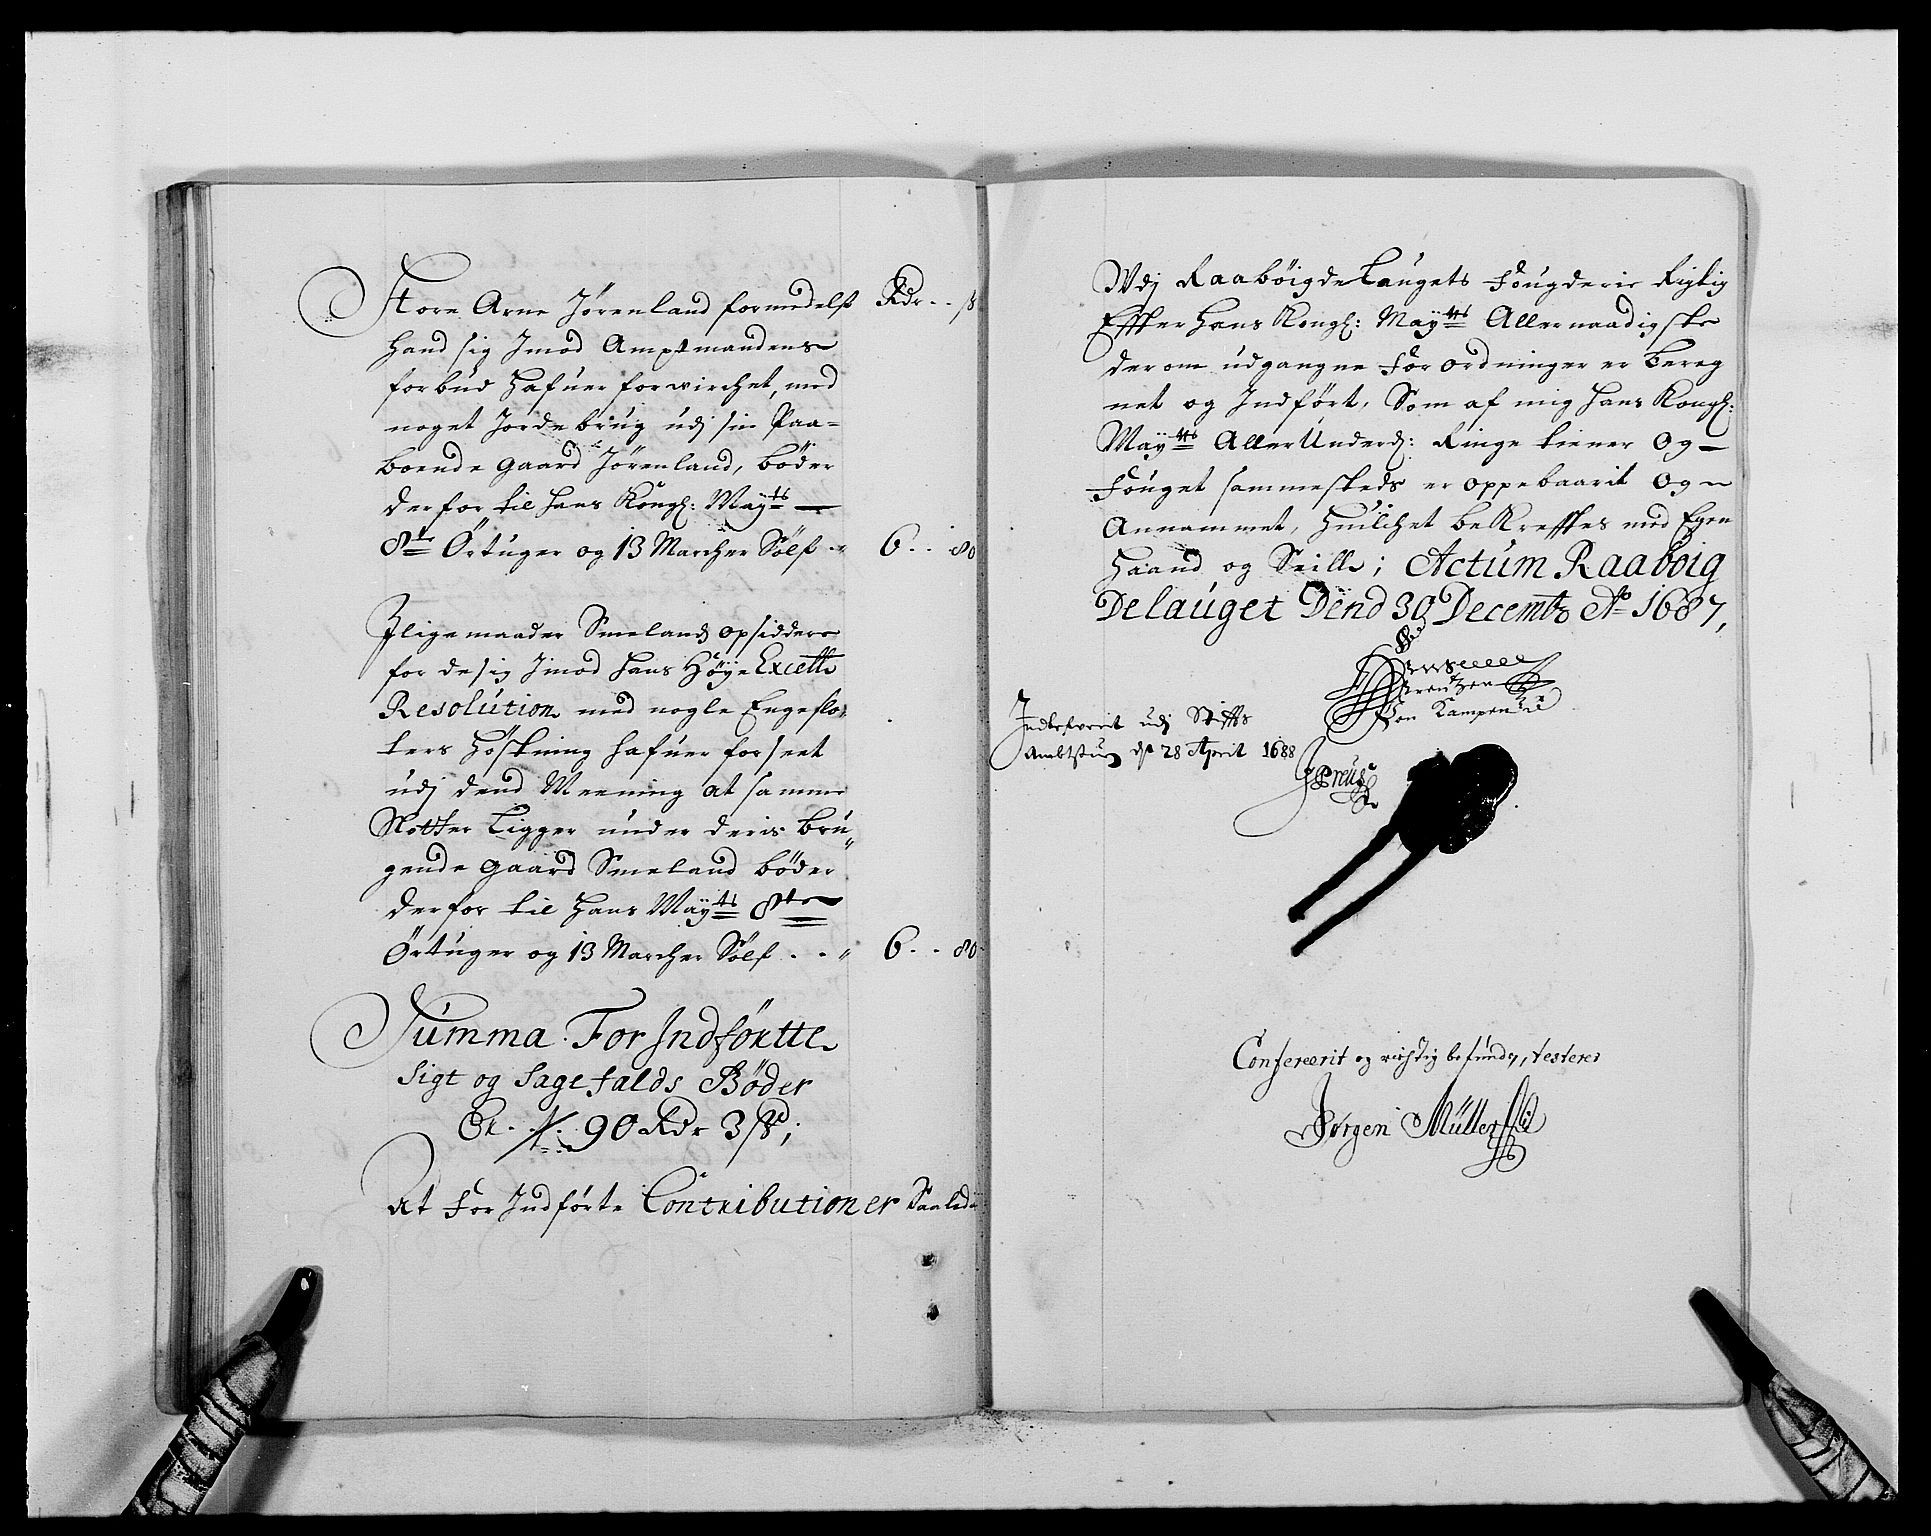 Store Arne Jórenland formedelst Rdr - - ß
hand sig Imod Amptmandens
forbud hafuer forwirchet, med
noget Jordebrug udj sin Paa-
boende gaard Jórenland, bóder
derfor til hans Kongl: Mayts
8te Örtuger og 13 Marcher Sölf - 6 - - 80
Jligemaader Smelands opsiddere
for de sig Jmod hans Höye Excell
Resolution med nogle Engeslo,
ters Höstning hafuer forseet
udj dend Meening at samme
Slotter Ligger under deris bru,,
gende gaard Smeland bóder
derfor til hans Mayts 8te
Örtuger og 13 Marcher Sölf - - 6 - - 80
Summa. For Indförtte
Sigt og Sagefalds Böder
Er - - 90 Rdr 3 ß;
At For Indförte Contributioner Saaled
Vdj Raabóigdelaugets Fougderie Rigtig
Effter hans Kongl: Mayts Allernaadigste
derom udgangne Forordninger er bereg
net og Indfört, Som af mig hans Kongl:
Mayts AllerUnderd: Ringe tiener Og
Fouget sammesteds er oppebaarit Og
Annammet, huilchet bekrefftes med Egen
Haand og Seille; Actum Raaböig
Delauget Dend 30 Decembr Ao 1687,
Arentzen
Von Kampen
Indlefwerit udj Stiffts
Ambtstuen dn 28 Aprit 1688
Preus
Confererit og richtig befunden, testerer
Jörgen Müller